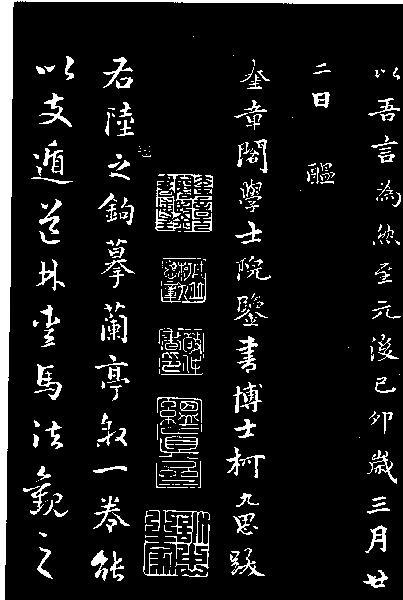 以吾言為然至元後己卯歲三月廿
二日
奎章閣學士院鑒書博士柯九思跋
右陸之鉤摹蘭亭叙一卷能
以支遁道林愛馬法觀之